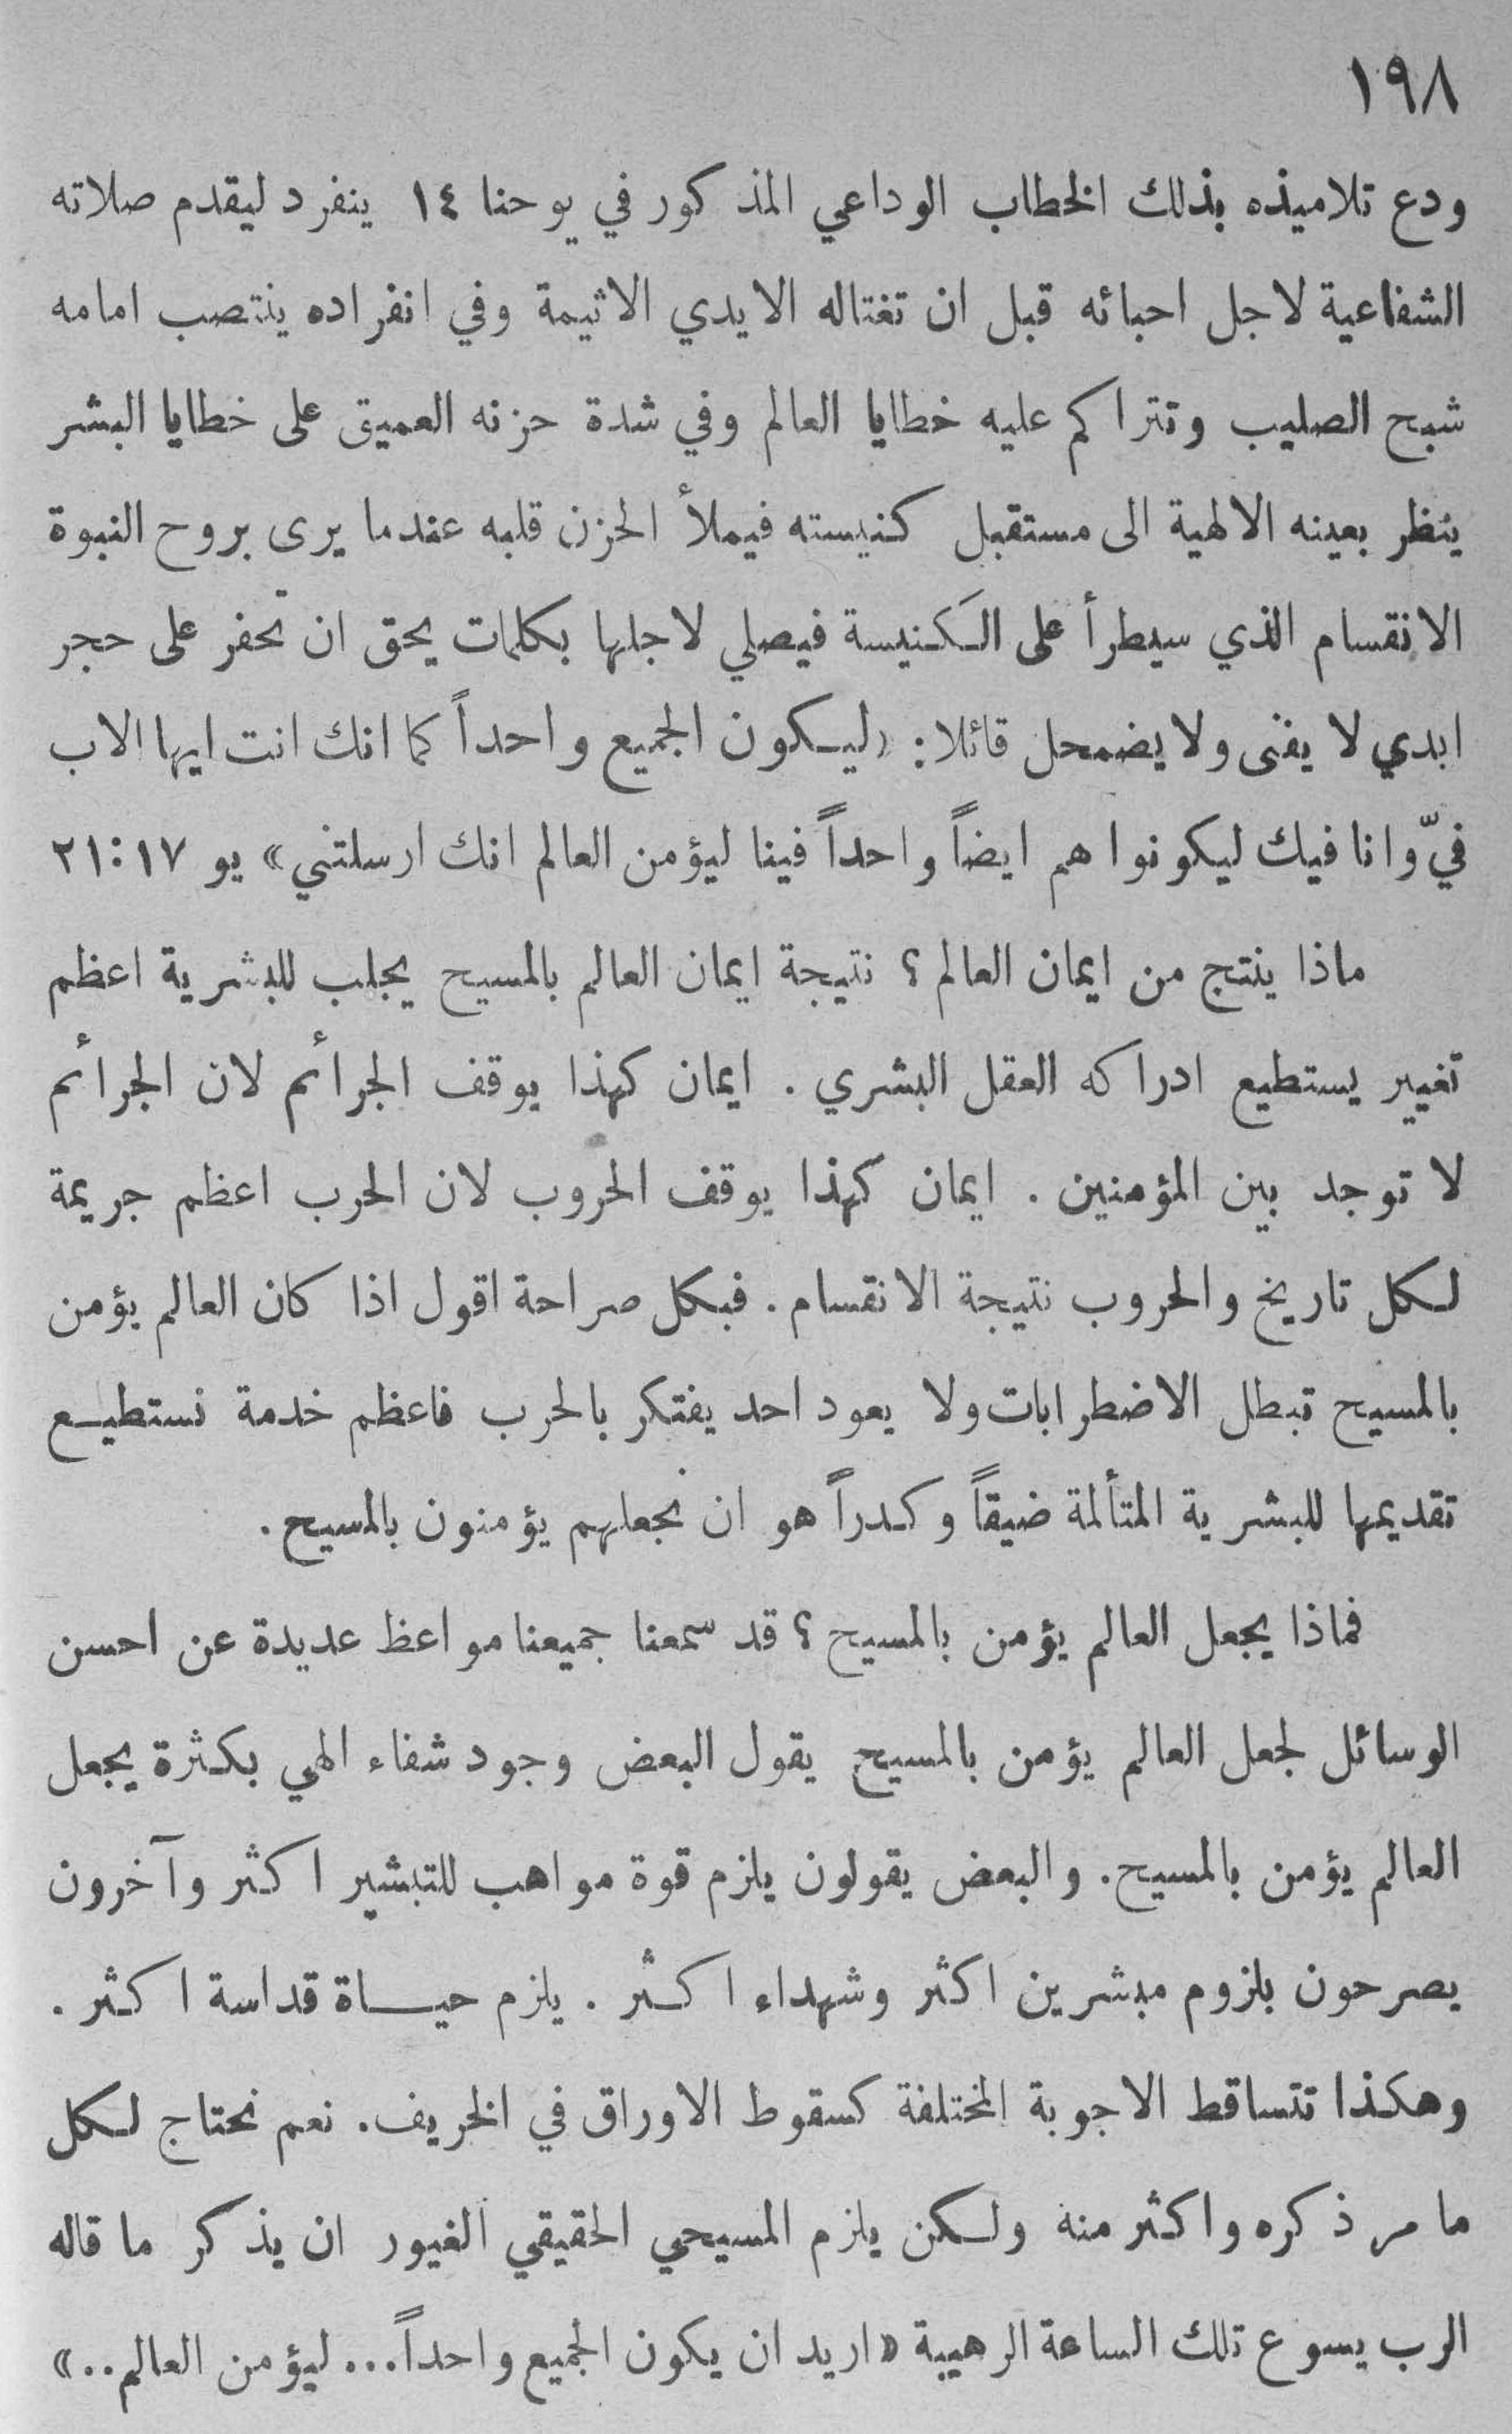 ١٩٨
ودع تلاميذه بذلك الخطاب الوداعي المذكور في يوحنا ١٤ ينفرد ليقدم صلاته
الشفاعية لاجل احبائه قبل ان تغتاله الايدي الاثيمة وفي انفراده ينتصب امامه
شبح الصليب وتتراكم عليه خطايا العالم وفي شدة حزنه العميق على خطايا البشر
ينظر بعينه الالهية الى مستقبل كنيسته فيملأ الحزن قلبه عندما يرى بروح النبوة
الانقسام الذي سيطرأ على الكنيسة فيصلي لاجلها بكلمات يحق ان تحفر على حجر
ابدي لا يفنى ولا يضمحل قائلا: «ليكون الجميع واحداً كما انك انت ايها الاب
فيّ وانا فيك ليكونوا هم ايضاً واحداً فينا ليؤمن العالم انك ارسلتني» يو ١٧:٢١
ماذا ينتج من ايمان العالم؟ نتيجة ايمان العالم بالمسيح يجلب للبشرية اعظم
تغيير يستطيع ادراكه العقل البشري. ايمان كهذا يوقف الجرأئم لان الجرأئم
لا توجد بين المؤمنين. ايمان كهذا يوقف الحروب لان الحرب اعظم جريمة
لكل تاريخ والحروب نتيجة الانقسام. فبكل صراحة اقول اذا كان العالم يؤمن
بالمسيح تبطل الاضطرابات ولا يعود احد يفتكر بالحرب فاعظم خدمة نستطيع
تقديمها للبشرية المتألمة ضيقاً وكدراً هو ان نجعلهم يؤمنون بالمسيح.
فماذا يجعل العالم يؤمن بالمسيح؟ قد سمعنا جميعنا مواعظ عديدة عن احسن
الوسائل لجعل العالم يؤمن بالمسيح يقول البعض وجود شفاء الهي بكثرة يجعل
العالم يؤمن بالمسيح. والبعض يقولون يلزم قوة مواهب للتبشير اكثر وآخرون
يصرحون بلزوم مبشرين اكثر وشهداء اكثر. يلزم حياة قداسة اكثر.
وهكذا تتساقط الاجوبة المختلفة كسقوط الاوراق في الخريف. نعم نحتاج لكل
ما مر ذكره واكثر منه ولكن يلزم المسيحي الحقيقي الغيور ان يذكر ما قاله
الرب يسوع تلك الساعة الرهيبة «اريد ان يكون الجميع واحداً... ليؤمن العالم..»